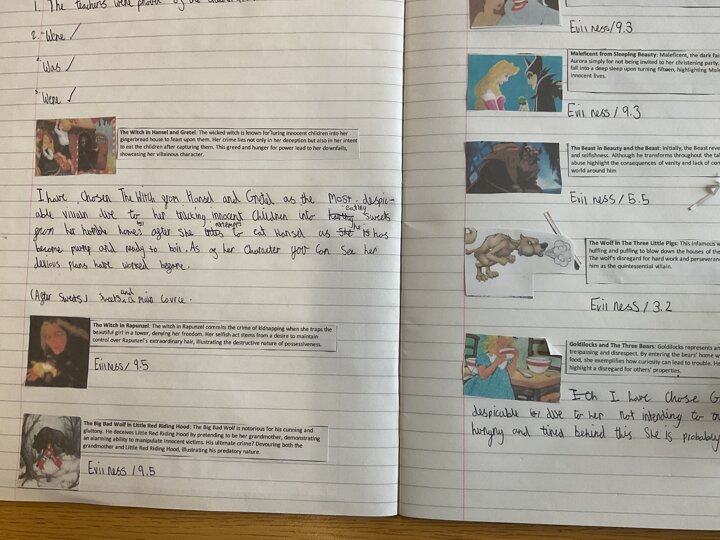 1. The teachers were proud of the children
2. Were ✓
Was ✓
Were ✓
The Witch in Hansel and Gretel: The wicked witch is known for luring innocent children into her
gingerbread house to feast upon them. Her crime lies not only in her deception but also in her intent
to eat the children after capturing them. This greed and hunger for power lead to her downfalls,
showcasing her villainous character.
I have chosen The Witch from Hansel and Gretel as the most despic-
able villain due to her tricking innocent children into eating sweets
from her horrible home, after she attempts to eat Hansel as he has
become pump and ready to boil. As of her character you can see her
devious plans have worked before.
(After sweets) sweets and a main cource.
The Witch in Rapunzel: The witch in Rapunzel commits the crime of kidnapping when she traps the
beautiful girl in a tower, denying her freedom. Her selfish act stems from a desire to maintain
control over Rapunzel's extraordinary hair, illustrating the destructive nature of possessiveness.
Evilness/9.5
The Big Bad Wolf in Little Red Riding Hood: The Big Bad Wolf is notorious for his cunning and
gluttony. He deceives Little Red Riding Hood by pretending to be her grandmother, demonstrating
an alarming ability to manipulate innocent victims. His ultimate crime? Devouring both the
grandmother and Little Red Riding Hood, illustrating his predatory nature.
Evilness/9.5
Evilness/9.3
Maleficent from Sleeping Beauty: Maleficent, the dark fai
Aurora simply for not being invited to her christening party.
fall into a deep sleep upon turning fifteen, highlighting Male
innocent lives.
Evilness/9.3
The Beast in Beauty and the Beast: Initially, the Beast reve
and selfishness. Although he transforms throughout the tal
abuse highlight the consequences of vanity and lack of con
world around him
Evilness/5.5
The Wolf in The Three Little Pigs: This infamous w
huffing and puffing to blow down the houses of the
The wolf's disregard for hard work and perseveran
him as the quintessential villain.
Evilness/3.2
Goldilocks and The Three Bears: Goldilocks represents an
trespassing and disrespect. By entering the bears' home w
food, she exemplifies how curiosity can lead to trouble. He
highlight a disregard for others' properties.
I have chose G
despicable due to her not intending to
hungry and tired behind this she is probably